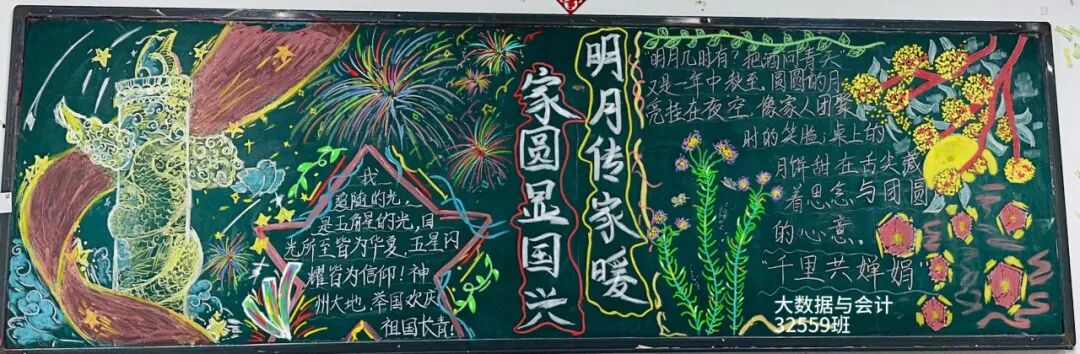 我
追随的光，
是五角星的光，目
光所至皆为华夏，五星闪
耀皆为信仰！神
州大地，举国欢庆
祖国长青！
明月传家暖
家圆显国兴
明月几时有？把酒问青天
又是一年中秋至，圆圆的月
亮挂在夜空，像家人团聚
时的笑脸；桌上的
月饼甜在舌尖藏
着思念与团圆
的心意。
"千里共婵娟"
大数据与会计
32559班